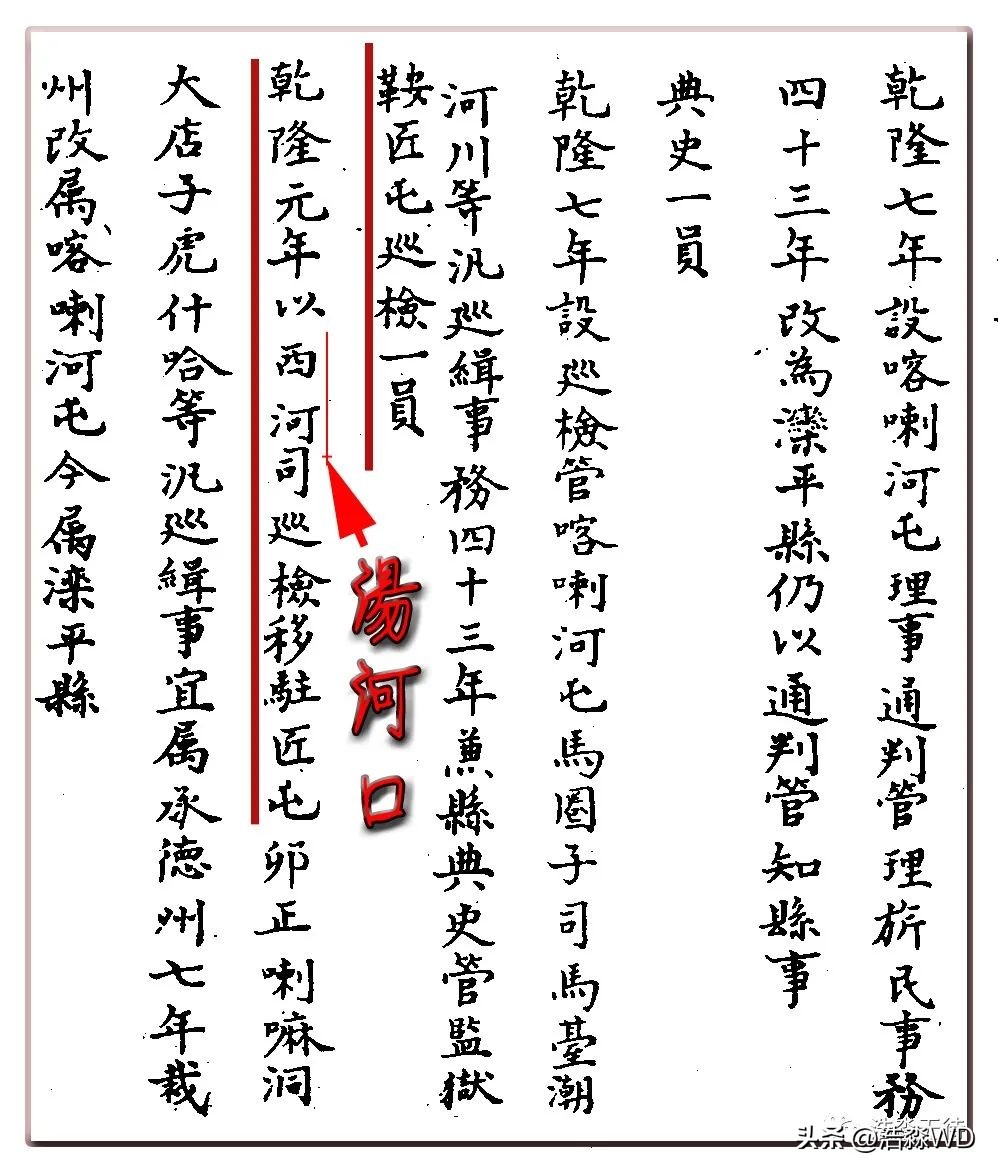 乾隆七年設喀喇河屯理事通判管理旂民事務
四十三年改為灤平縣仍以通判管知縣事
典史一員
乾隆七年設廵檢管喀喇河屯馬圈子司馬臺潮
河川等汛廵緝事務四十三年兼縣典史管監獄
鞍匠屯廵檢一員
乾隆元年以西河司廵檢移駐匠屯卯正喇嘛洞
大店子虎什哈等汛廵緝事宜属承德州七年裁
州改属喀喇河屯今属滦平縣
湯河口
头条@浩淼WD